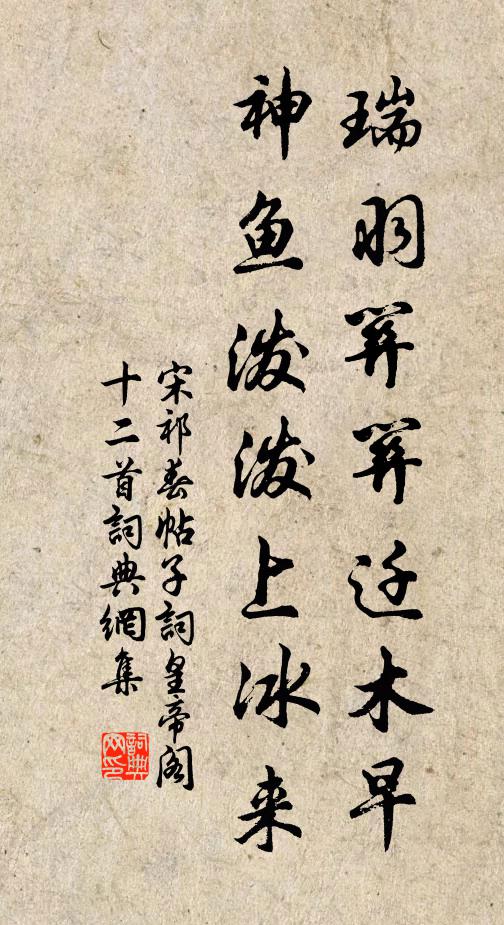 瑞羽关关迁木早
神鱼泼泼上冰来
宋祁春帖子詞皇帝阁
十二首詞典網集
詞典
网印